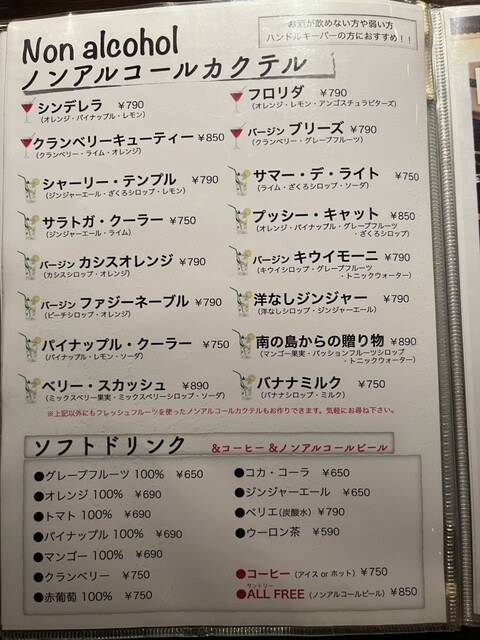 Non alcohol
ノンアルコールカクテル
お酒が飲めない方や弱い方
ハンドルキーパーの方におすすめ！！
シンデレラ ¥790
（オレンジ・パイナップル・レモン）
クランベリーキューティー ¥850
（クランベリー・ライム・オレンジ）
シャーリー・テンプル ¥790
（ジンジャーエール・ざくろシロップ・レモン）
サラトガ・クーラー ¥750
（ジンジャーエール・ライム）
バージン カシスオレンジ ¥790
（カシスシロップ・オレンジ）
バージン ファジーネーブル ¥790
（ピーチシロップ・オレンジ）
パイナップル・クーラー ¥750
（パイナップル・レモン・ソーダ）
ベリー・スカッシュ ¥890
（ミックスベリー果実・ミックスベリーシロップ・ソーダ）
フロリダ ¥790
（オレンジ・レモン・アンゴスチュラビターズ）
バージン ブリーズ ¥790
（クランベリー・グレープフルーツ）
サマー・デ・ライト ¥750
（ライム・ざくろシロップ・ソーダ）
プッシー・キャット ¥850
（オレンジ・パイナップル・グレープフルーツ
・ざくろシロップ）
バージン キウイモーニ ¥790
（キウイシロップ・グレープフルーツ
・トニックウォーター）
洋なしジンジャー ¥790
（洋なしシロップ・ジンジャーエール）
南の島からの贈り物 ¥890
（マンゴー果実・パッションフルーツシロップ
・トニックウォーター）
バナナミルク ¥750
（バナナシロップ・ミルク）
※上記以外にもフレッシュフルーツを使ったノンアルコールカクテルもお作りできます。気軽にお尋ね下さい。
ソフトドリンク ＆コーヒー ＆ノンアルコールビール
●グレープフルーツ 100% ¥650
●オレンジ 100% ¥690
●トマト 100% ¥690
●パイナップル 100% ¥690
●マンゴー 100% ¥690
●クランベリー ¥750
●赤葡萄 100% ¥750
●コカ・コーラ ¥650
●ジンジャーエール ¥650
●ペリエ（炭酸水）¥790
●ウーロン茶 ¥590
●コーヒー（アイス or ホット）¥750
サントリー
●ALL FREE（ノンアルコールビール）¥850